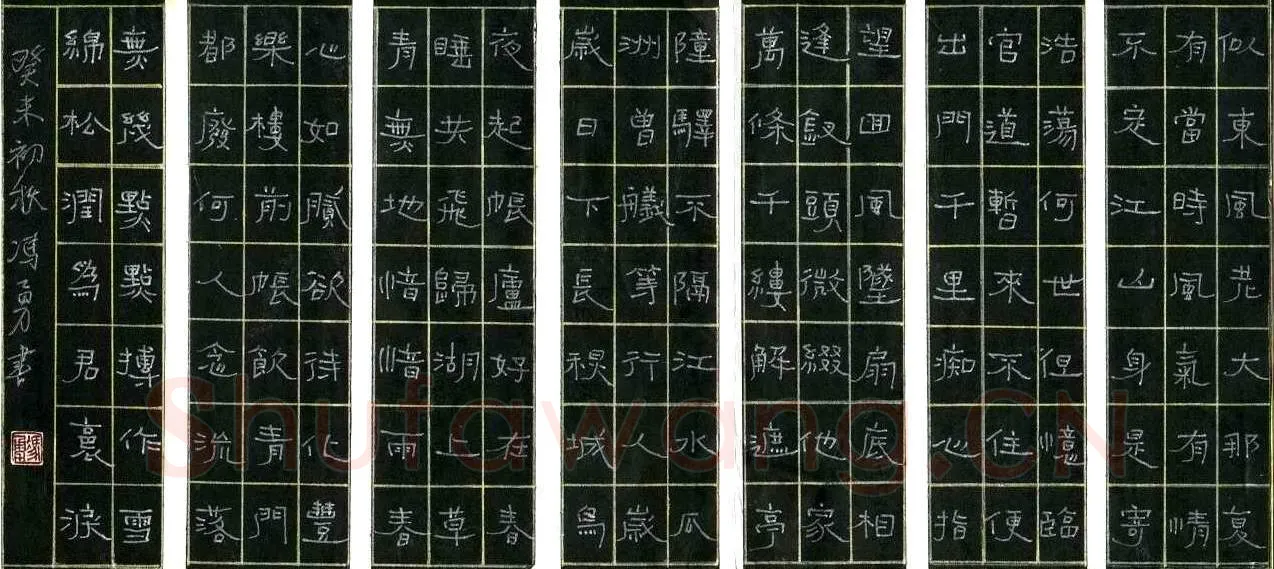 似東風老大那復
有當時風氣有情
不定江山身是寄
浩蕩何世但憶臨
官道暫來不住便
出門千里痴心指
望回風墜扇底相
逢釵頭微綴他家
萬條千縷解遮亭
障驛不隔江水瓜
洲曾艤等行人歲
歲日下長秋城烏
夜起帳廬好在春
睡共飛歸湖上草
青無地愔愔雨春
心如膩欲待化豐
樂樓前帳飲青門
都廢何人念流落
無幾點點摶作雪
綿松潤為君裛淚
癸未初秋 馮勇書
Shufawang.CN